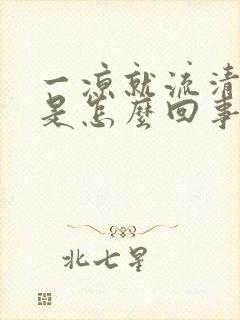 一凉就流清
是怎麼回事
北七星